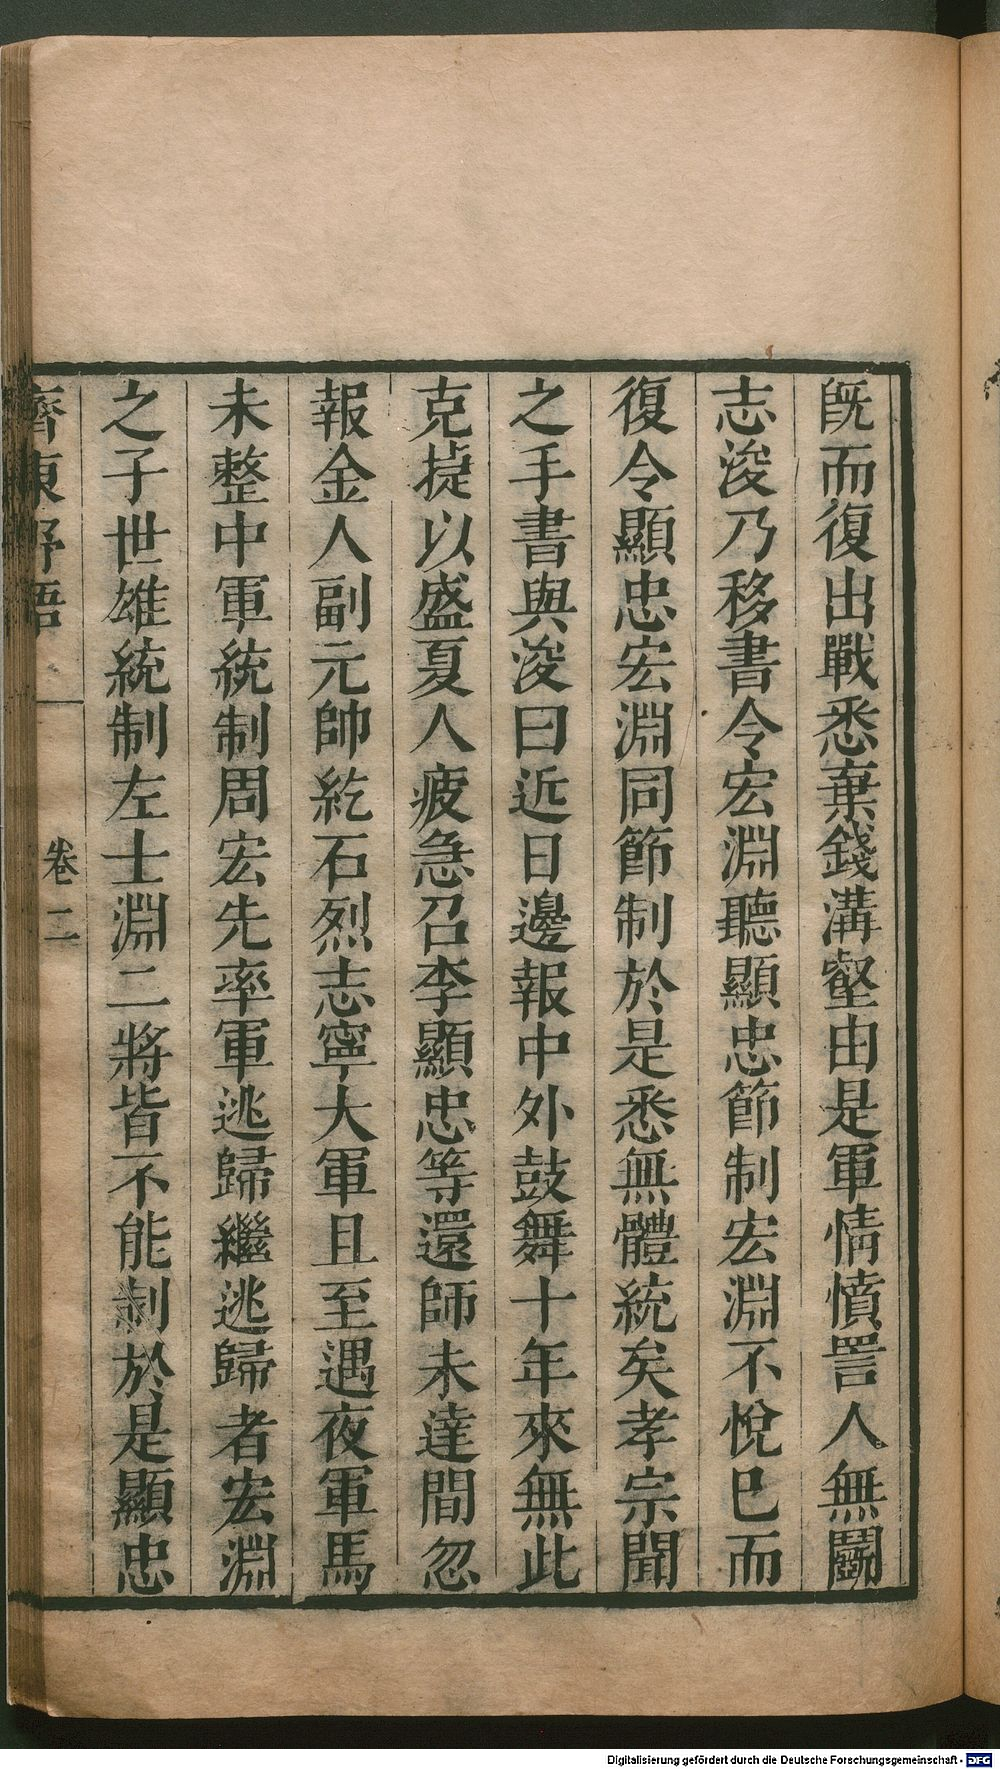 既而復出戰悉棄錢溝壑由是軍情憤詈人無鬭
志浚乃移書令宏淵聽顯忠節制宏淵不悅已而
復令顯忠宏淵同節制於是悉無體統矣孝宗聞
之手書與浚曰近日邊報中外鼓舞十年來無此
克捷以盛夏人疲急召李顯忠等還師未達間忽
報金人副元帥紇石烈志寧大軍且至遇夜軍馬
未整中軍統制周宏先率軍逃歸繼逃歸者宏淵
之子世雄統制左士淵二將皆不能制於是顯忠
齊東野語 卷二
Digitalisierung gefördert durch die Deutsche Forschungsgemeinschaft - DFG